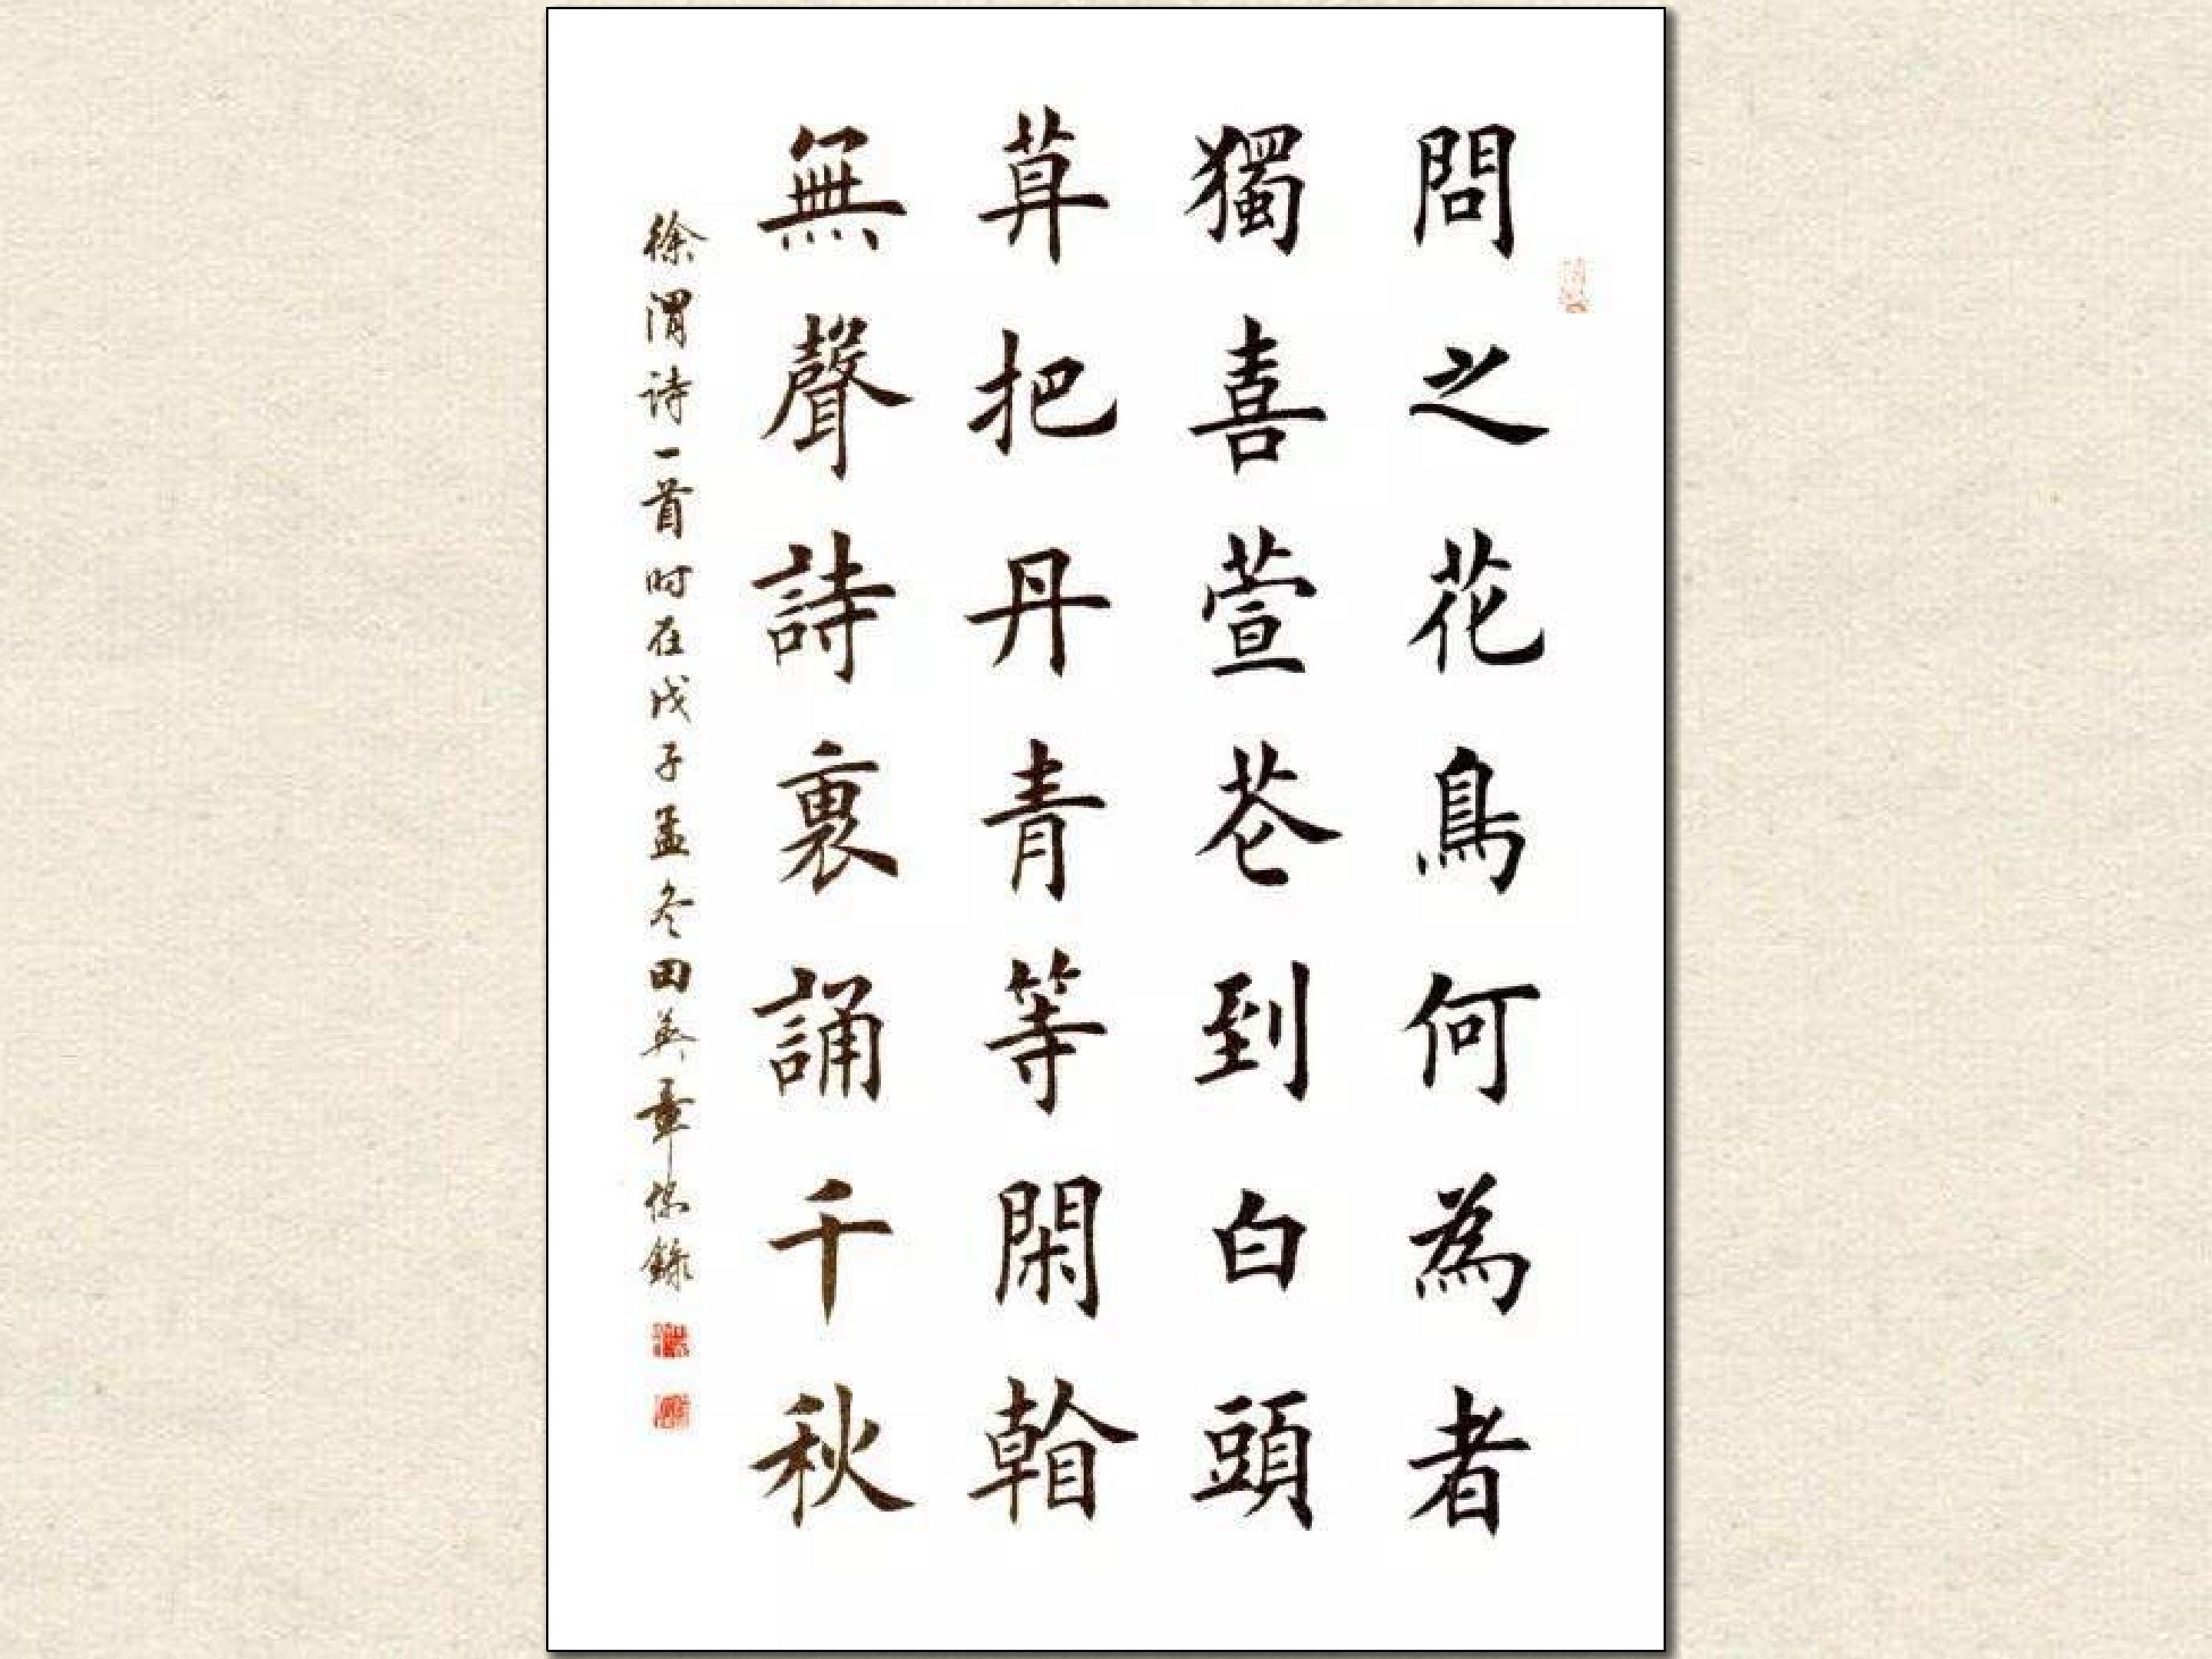 問之花鳥何為者
獨喜萱苍到白頭
莫把丹青等閑看
無聲詩裏誦千秋
徐渭诗一首时在戊子孟冬田英章保錄